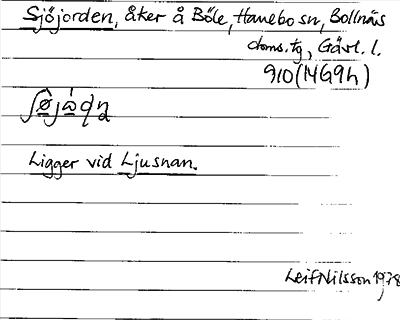 Sjöjorden, åker å Böle, Hanebo sn, Bollnäs
doms.tg, Gävl. l.
910 (14G9h)
Ligger vid Ljusnan.
Leif Nilsson 1978